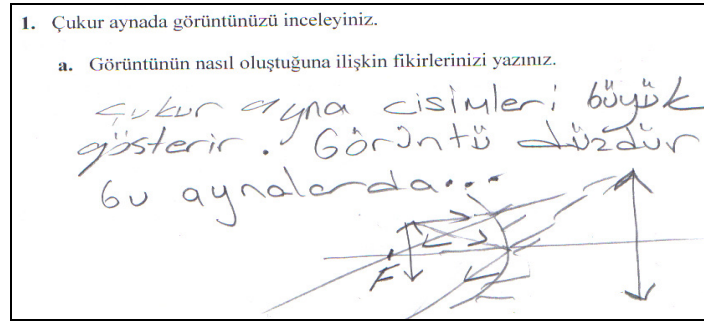 1. Çukur aynada görüntünüzü inceleyiniz.
a. Görüntünün nasıl oluştuğuna ilişkin fikirlerinizi yazınız.
Çukur ayna cisimleri büyük
gösterir. Görüntü düzdür
bu aynalarda...
F